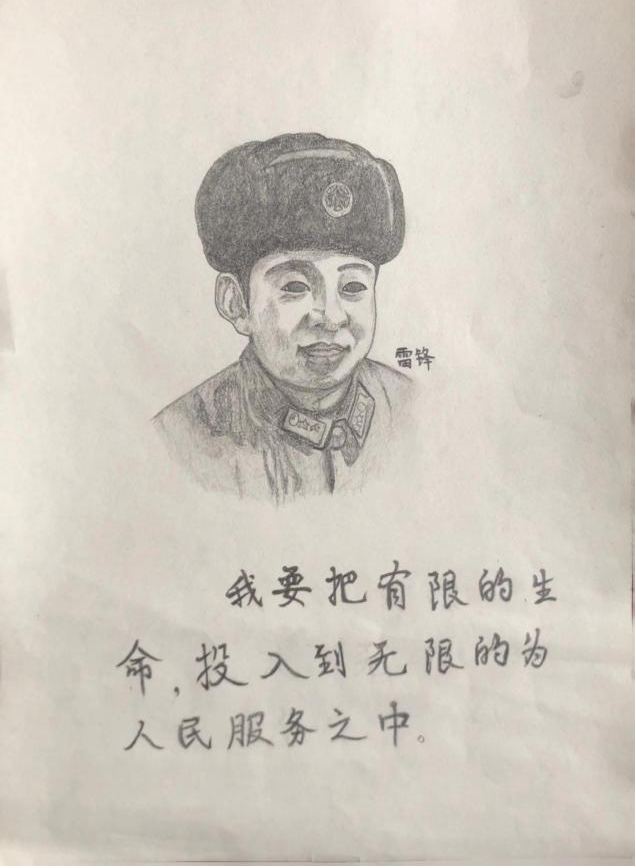 雷锋
我要把有限的生
命,投入到无限的为
人民服务之中。